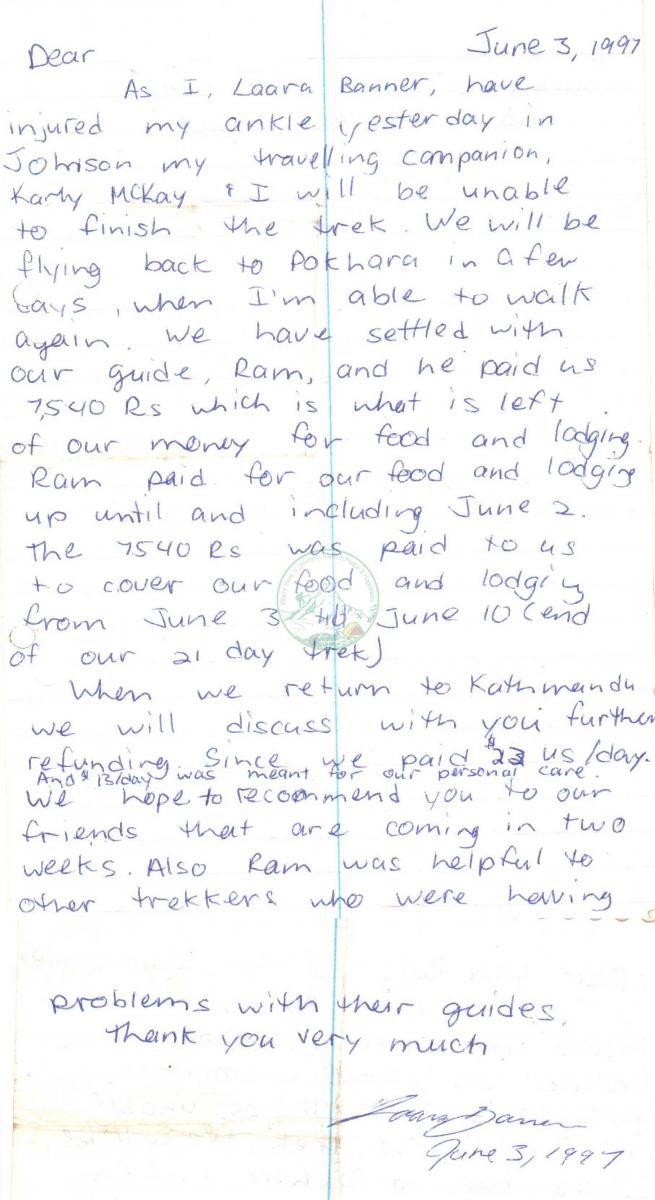 June 3, 1997
Dear
As I, Laara Banner, have
injured my ankle yesterday in
Johnson my travelling companion,
Karly McKay & I will be unable
to finish the trek. We will be
flying back to Pokhara in a few
days, when I'm able to walk
again. We have settled with
our guide, Ram, and he paid us
7,540 Rs which is what is left
of our money for food and lodging.
Ram paid for our food and lodging
up until and including June 2.
The 7540 Rs was paid to us
to cover our food and lodging
from June 3 till June 10 (end
of our 21 day trek)
When we return to Kathmandu
we will discuss with you further
refunding. Since we paid $23 US/day.
And $13/day was meant for our personal care.
We hope to recommend you to our
friends that are coming in two
weeks. Also Ram was helpful to
other trekkers who were having
problems with their guides.
Thank you very much
Laara Banner
June 3, 1997